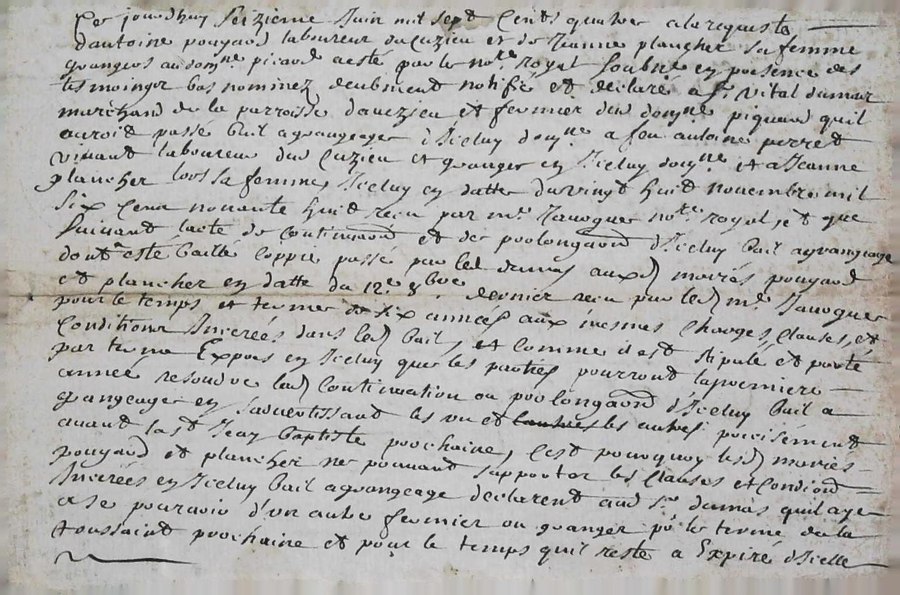 Ce jourdhuy seizieme Juin mil sept cents quatre a la requeste
dantoine pouyard laboureur du Cuzieu et de Jeanne plancher sa femme
grangers au dom.ne picard a esté par le no.re royal soubne en presence des
tesmoings bas nominez deubment notifié et declaré a s.r vital dumas
marchand de la parroisse dauzieu et fermier dud dom.ne piquard quil
auroit passe bail a grangeage d'Iceluy dom.ne a feu antoine perret
vivant laboureur dud Cuzieu et granger en Iceluy dom.ne et a Jeanne
plancher lors sa femme, Iceluy en datte du vingt huit novembre mil
six cens nonante huit receu par m.e no.re royal, et que
suivant lacte de Continuaon et de proolongaon d'Iceluy bail a grangeage
dont a esté baillé Coppie passé par led dumas auxd mariés pouyard
et plancher en datte du 12.e 8.bre dernier receu par led m.e
pour le temps et terme de six années aux mesmes Charges, Clauses, et
Conditions Incerées dans led bail, et Comme il est stipulé et porté
par terme Expres en Iceluy que les parties pourront la premiere
année resoudre lad Continuation ou proolongaon d'Iceluy bail a
grangeage en savertissant les uns et les autres precisément
avant la s.t Jean baptiste prochaine, Cest pourquoy lesd mariés
pouyard et plancher ne pouvant supporter les Clauses et Condions
Incerées en Iceluy bail a grangeage declarent aud s.r dumas quil aye
a se pourvoir d'un autre fermier ou granger p.r le terme de la
toussaint prochaine et pour le temps quil reste a Expiré d'Icelle